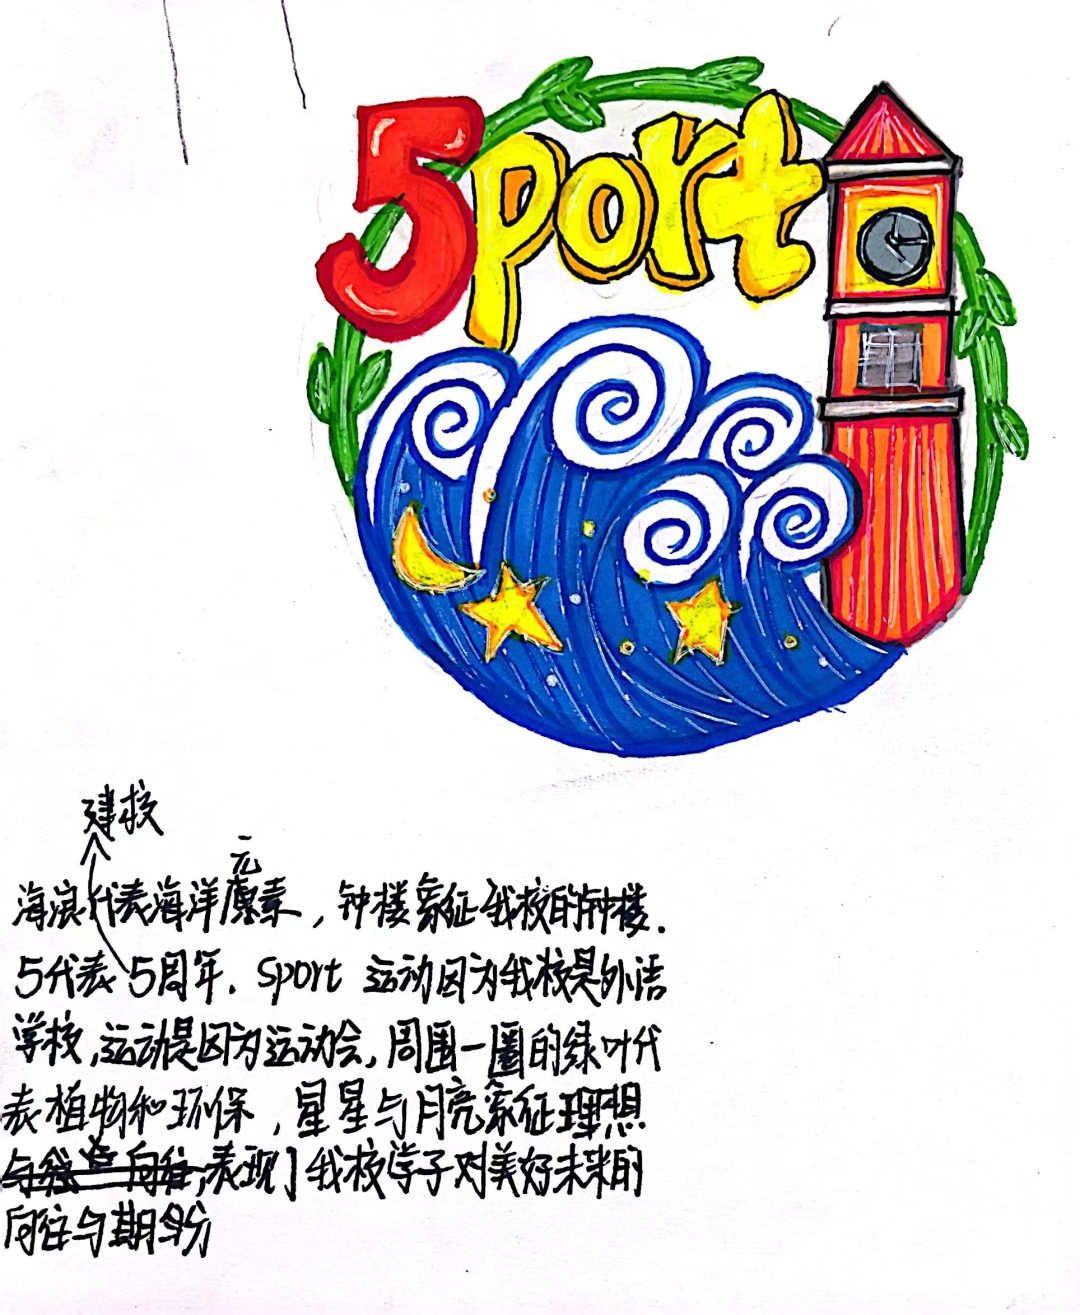 5port
建校
元
海浪代表海洋素，钟楼象征我校的钟楼.
5代表5周年. Sport 运动因为我校是外语
学校,运动是因为运动会,周围一圈的绿叶代
表植物和环保，星星与月亮象征理想
表现了我校学子对美好未来的
向往与期盼